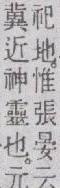 祀地。惟張晏云
冀近神靈也。元